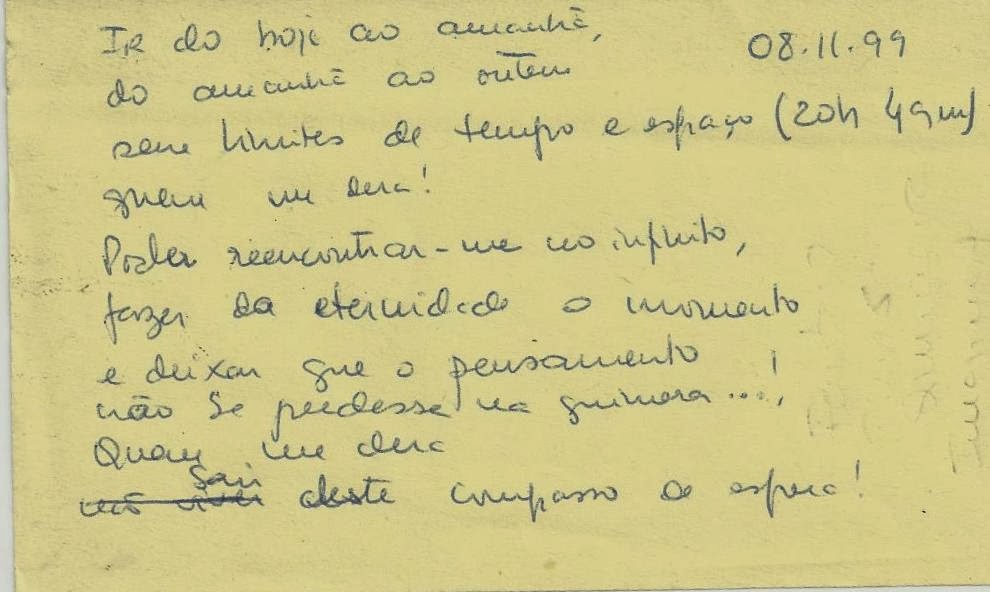 Ir do hoje ao amanhã,
08.11.99
do amanhã ao ontem
sem limites de tempo e espaço (20h 49m)
quem me dera!
Poder reencontrar-me no infinito,
fazer da eternidade o momento
e deixar que o pensamento
não se perdesse na quimera...!
Quem me dera
sair
não viver deste compasso de espera!